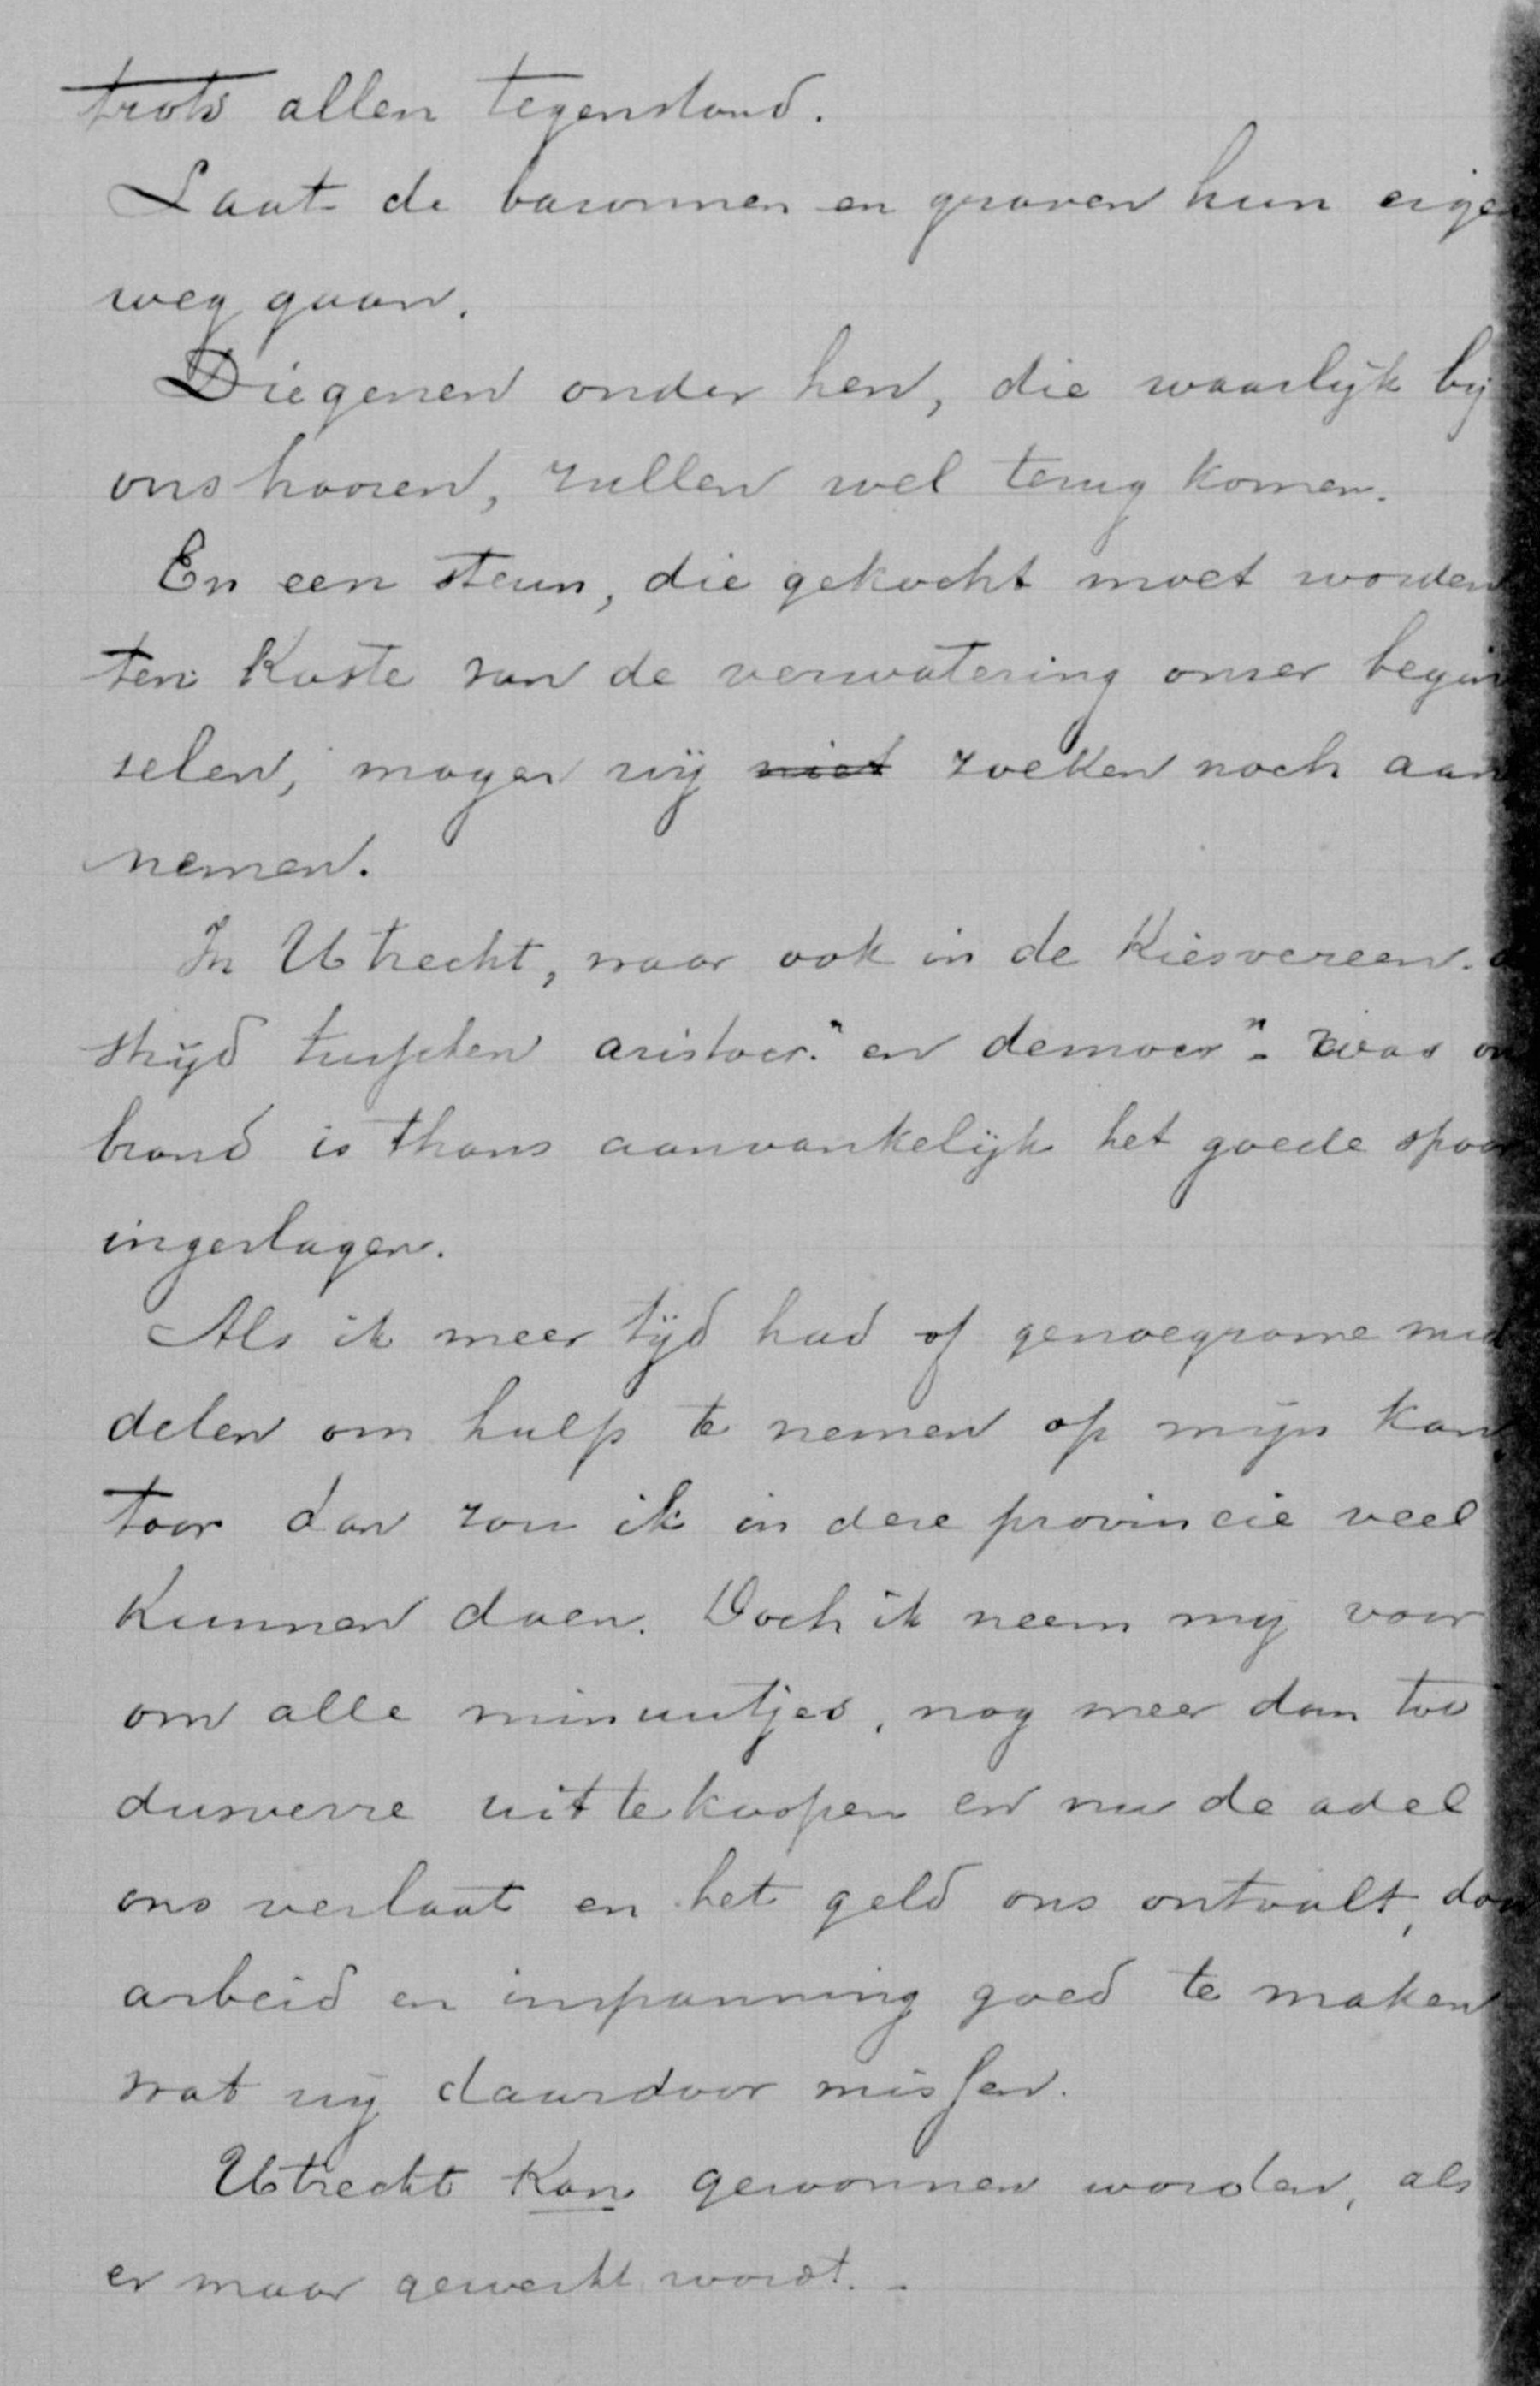 trots allen tegenstand.
Laat de baronnen en graven hun eigen
weg gaan.
Diegenen onder hen, die waarlijk bij
ons hooren, zullen wel terug komen.
En een steun, die gekocht moet worden
ten koste van de verwatering onzer begin
selen, mogen wij niet zoeken noch aan
nemen.
In Utrecht, waar ook in de Kiesvereen.
strijd tusschen aristocr.n en democrn. was
brand is thans aanvankelijk het goede spoor
ingeslagen.
Als ik meer tijd had of genoegzame mid
delen om hulp te nemen op mijn kan
toor dan zou ik in deze provincie veel
kunnen doen. Doch ik neem mij voor
om alle minuutjes, nog meer dan tot
dusverre uittekoopen en nu de adel
ons verlaat en het geld ons ontvalt, door
arbeid en inspanning goed te maken
wat wij daardoor missen.
Utrecht kan gewonnen worden, als
er maar gewerkt wordt. -